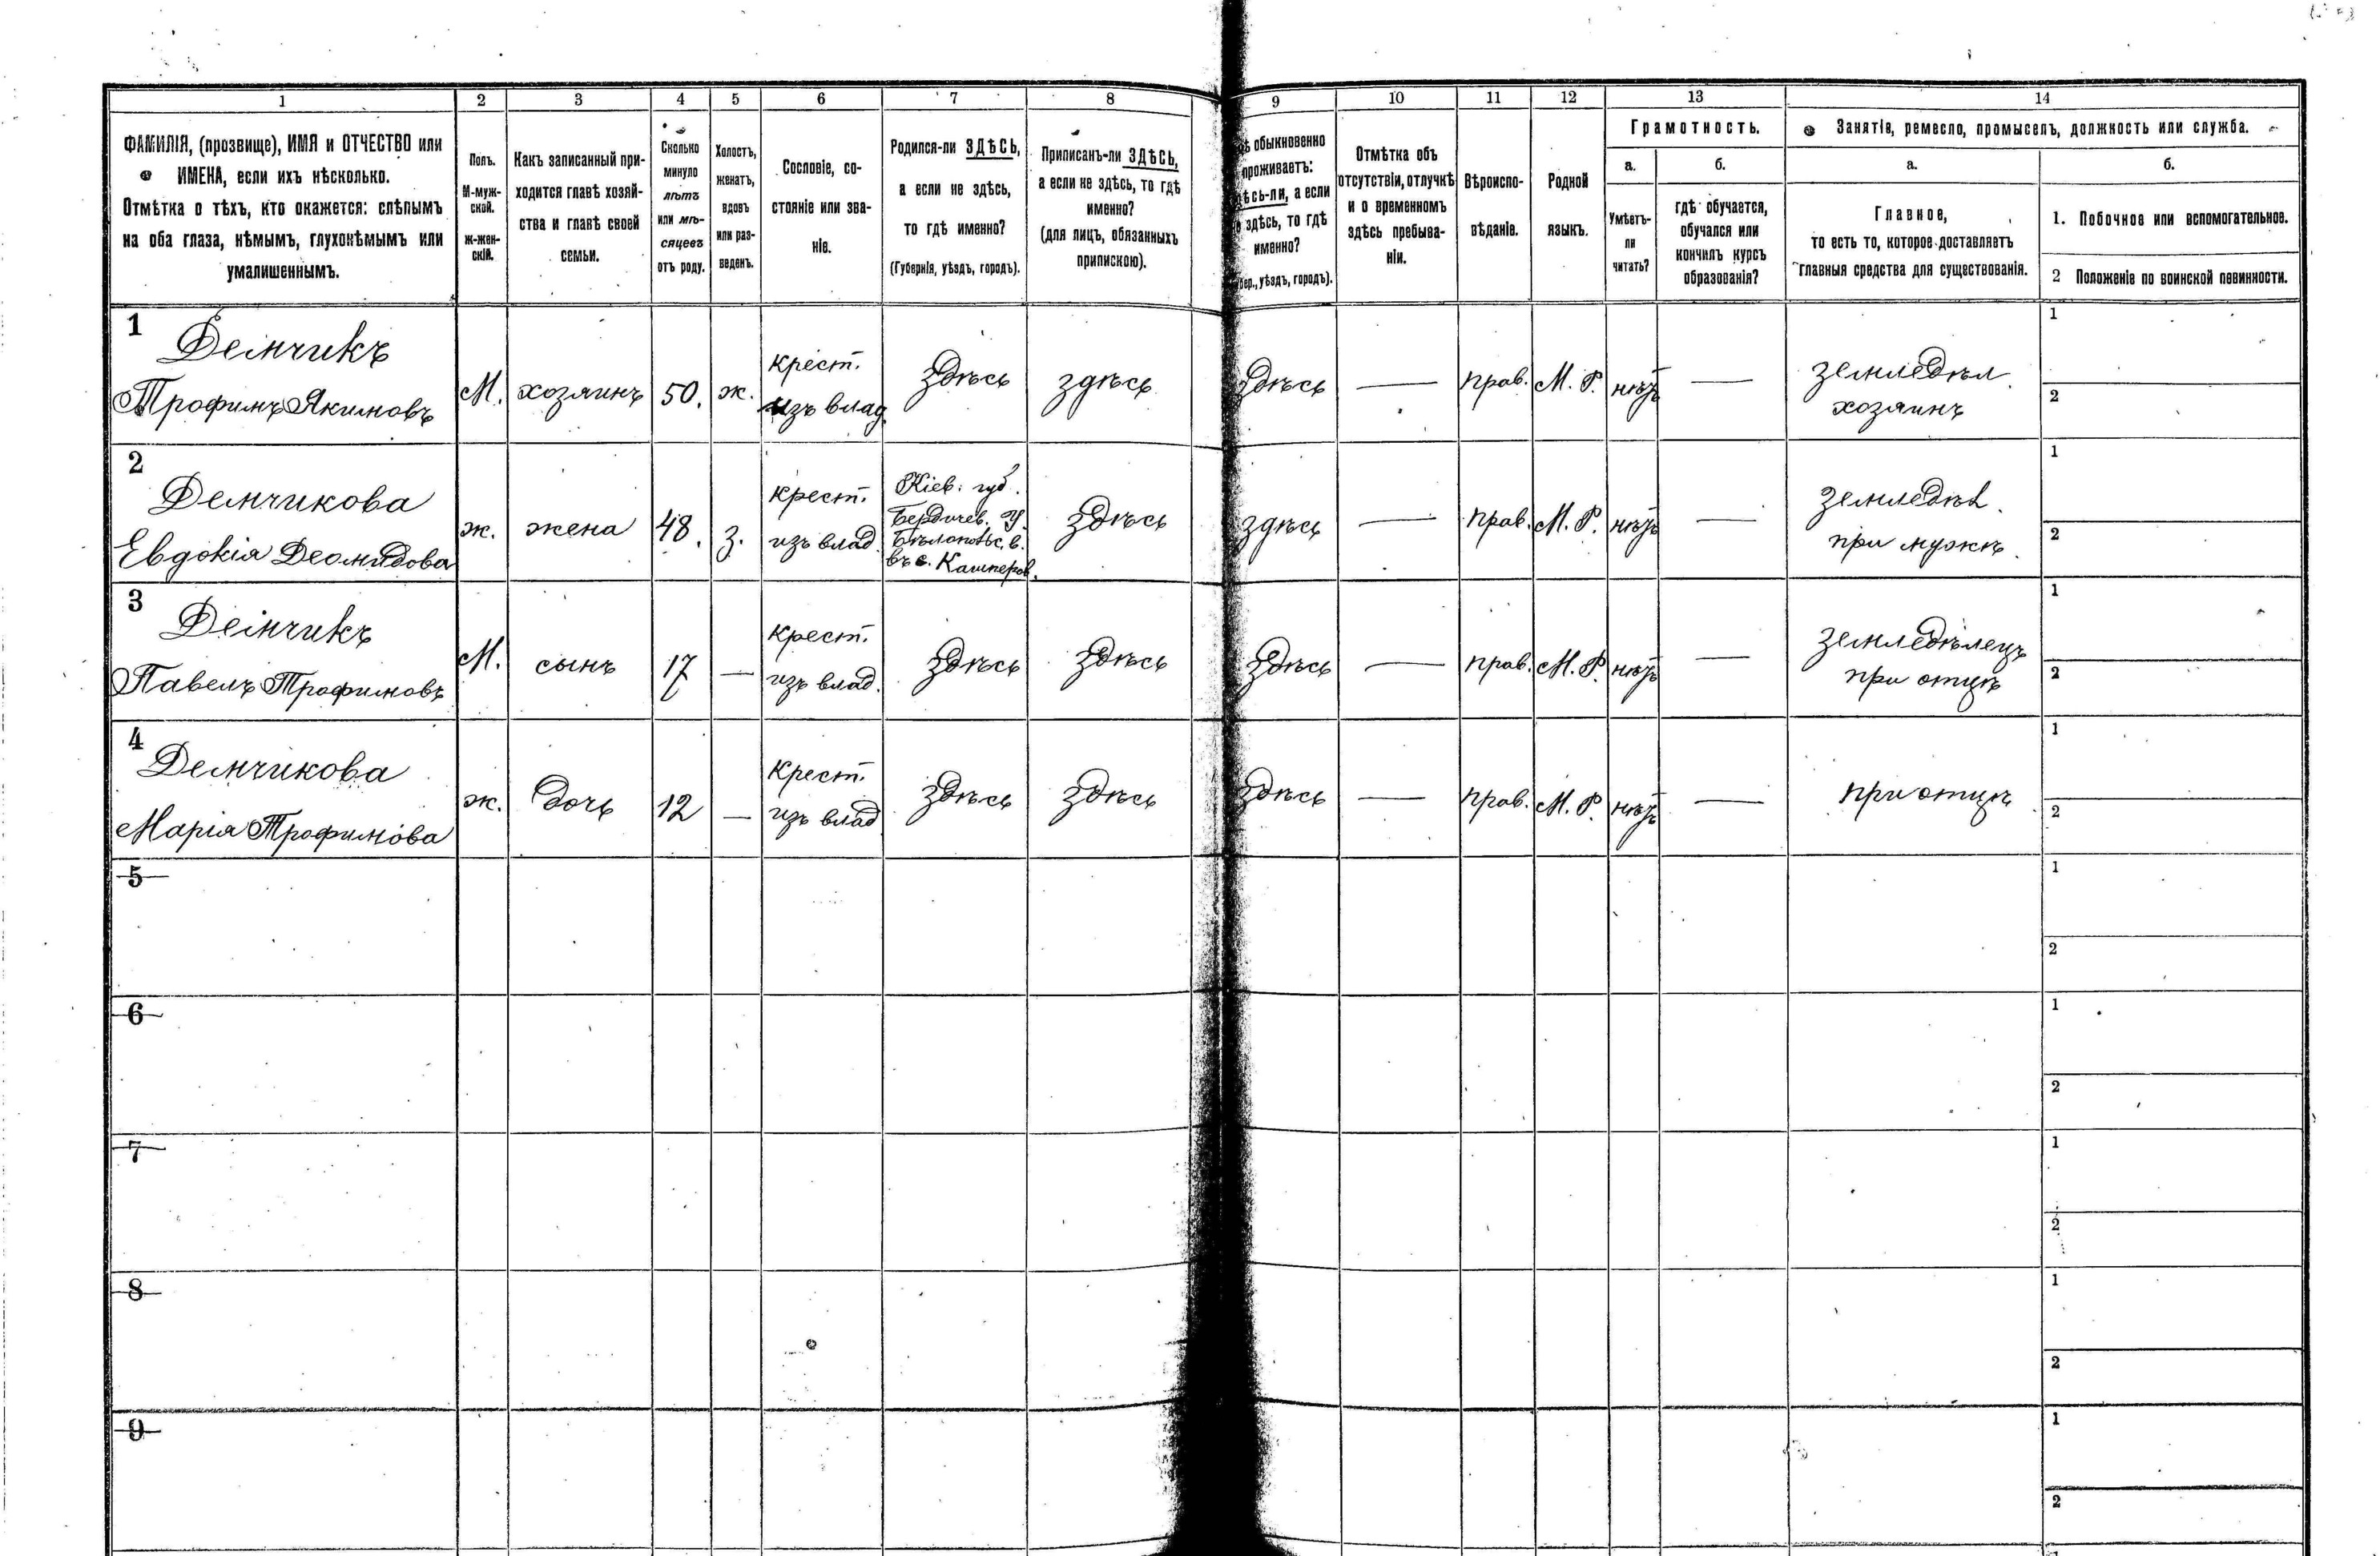 1 2 3 4 5 6 7 8 9 10 11 12 13 14
ФАМИЛІЯ, (прозвище), ИМЯ и ОТЧЕСТВО или
ИМЕНА, если ихъ нѣсколько.
Отмѣтка о тѣхъ, кто окажется: слѣпымъ
на оба глаза, нѣмымъ, глухонѣмымъ или
умалишеннымъ.
Полъ.
М-муж-
ской.
ж-жен-
скій.
Какъ записанный при-
ходится главѣ хозяй-
ства и главѣ своей
семьи.
Сколько
минуло
лѣтъ
или мѣ-
сяцевъ
отъ роду.
Холостъ,
женатъ,
вдовъ
или раз-
веденъ.
Сословіе, со-
стояніе или зва-
ніе.
Родился-ли ЗДѢСЬ,
а если не здѣсь,
то гдѣ именно?
(Губернія, уѣздъ, городъ).
Приписанъ-ли ЗДѢСЬ,
а если не здѣсь, то гдѣ
именно?
(для лицъ, обязанныхъ
припискою).
обыкновенно
проживаетъ:
здѣсь-ли, а если
здѣсь, то гдѣ
именно?
уѣздъ, городъ).
Отмѣтка объ
отсутствіи, отлучкѣ
и о временномъ
здѣсь пребыва-
ніи.
Вѣроиспо-
вѣданіе.
Родной
языкъ.
Грамотность.
а.
Умѣетъ-
ли
читать?
б.
гдѣ обучается,
обучался или
кончилъ курсъ
образованія?
Занятіе, ремесло, промыселъ, должность или служба.
а.
Главное,
то есть то, которое доставляетъ
главныя средства для существованія.
б.
1. Побочное или вспомогательное.
2 Положеніе по воинской повинности.
1
Демчикъ
Трофимъ Якимовъ
М.
хозяинъ
50.
ж.
крест.
изъ влад.
здѣсь
здѣсь
здѣсь
—
прав.
М. Р.
нѣтъ
—
земледѣл.
хозяинъ
1
2
2
Демчикова
Евдокія Деомидова
ж.
жена
48.
з.
крест.
изъ влад.
Кіев. губ.
Бердичев. у.
въ с. Кашперов.
здѣсь
здѣсь
—
прав.
М. Р.
нѣтъ
—
земледѣл.
при мужѣ.
1
2
3
Демчикъ
Павелъ Трофимовъ
М.
сынъ
17
—
крест.
изъ влад.
здѣсь
здѣсь
здѣсь
—
прав.
М. Р.
нѣтъ
—
земледѣлецъ
при отцѣ
1
2
4
Демчикова
Марія Трофимова
ж.
дочь
12
—
крест.
изъ влад
здѣсь
здѣсь
здѣсь
—
прав.
М. Р.
нѣтъ
—
при отцѣ
1
2
5
1
2
6
1
2
7
1
2
8
1
2
9
1
2